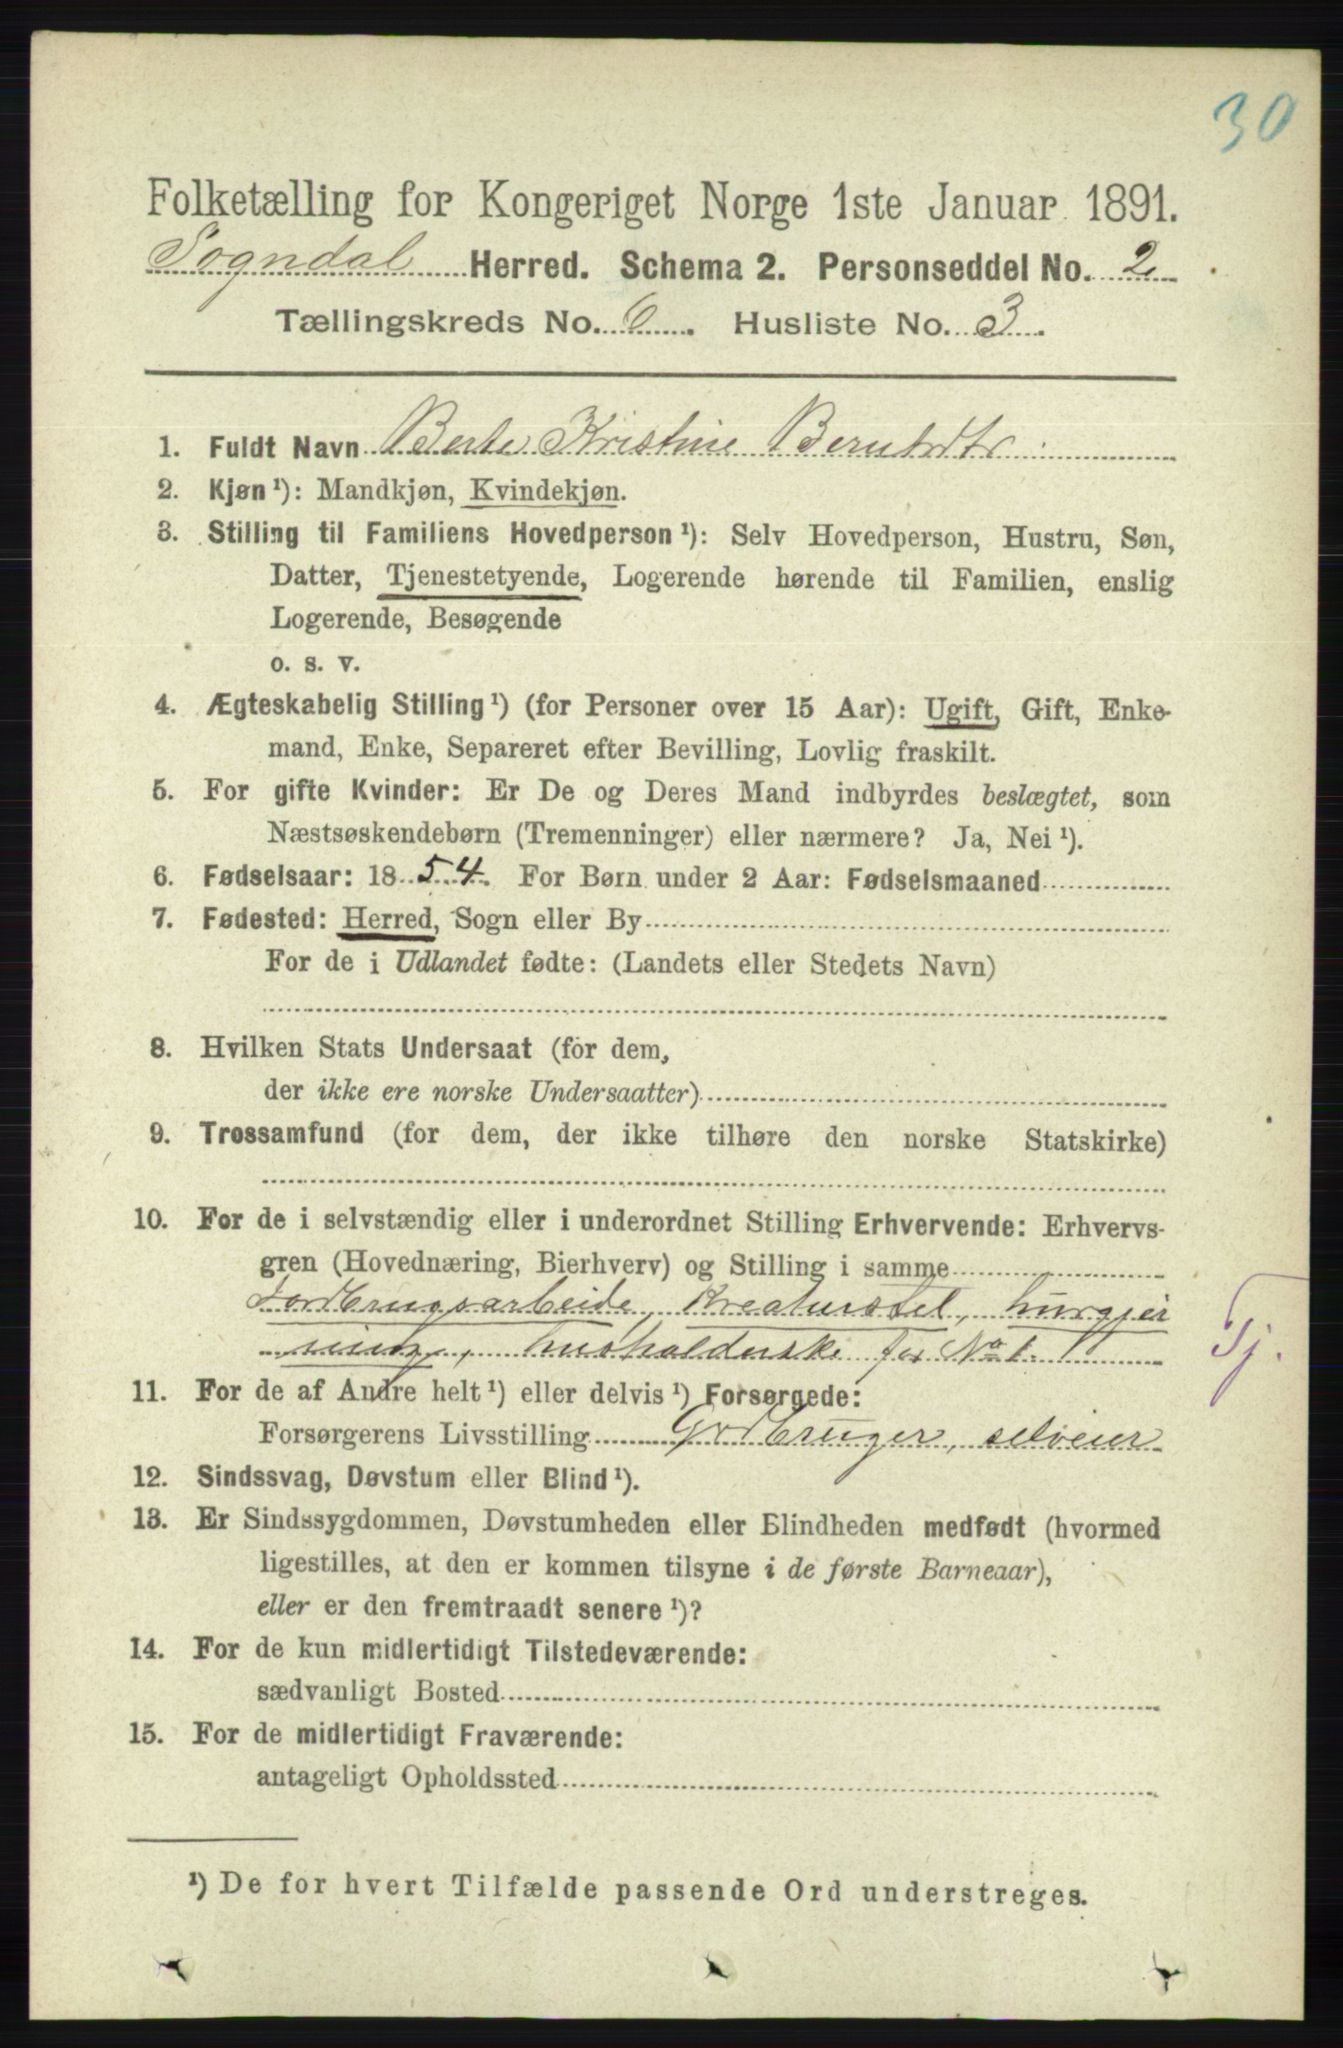 30
Folketælling for Kongeriget Norge 1ste Januar 1891.
Sogndal Herred. Schema 2. Personseddel No. 2
Tællingskreds No. 6. Husliste No. 3.
1. Fuldt Navn Berte Kristine Berntsdtr
2. Kjøn ¹): Mandkjøn, Kvindekjøn.
3. Stilling til Familiens Hovedperson ¹): Selv Hovedperson, Hustru, Søn,
Datter, Tjenestetyende, Logerende hørende til Familien, enslig
Logerende, Besøgende
o. s. v.
4. Ægteskabelig Stilling ¹) (for Personer over 15 Aar): Ugift, Gift, Enke-
mand, Enke, Separeret efter Bevilling, Lovlig fraskilt.
5. For gifte Kvinder: Er De og Deres Mand indbyrdes beslægtet, som
Næstsøskendebørn (Tremenninger) eller nærmere? Ja, Nei ¹).
6. Fødselsaar: 1854. For Børn under 2 Aar: Fødselsmaaned
7. Fødested: Herred, Sogn eller By
For de i Udlandet fødte: (Landets eller Stedets Navn)
8. Hvilken Stats Undersaat (for dem,
der ikke ere norske Undersaatter)
9. Trossamfund (for dem, der ikke tilhøre den norske Statskirke)
10. For de i selvstændig eller i underordnet Stilling Erhvervende: Erhvervs-
gren (Hovednæring, Bierhverv) og Stilling i samme
Jordbrugsarbeide, Kreaturstel, husgjer
ning, husholderske for No 1.
Tj.
11. For de af Andre helt ¹) eller delvis ¹) Forsørgede:
Forsørgerens Livsstilling Gdbruger, selveier
12. Sindssvag, Døvstum eller Blind ¹).
13. Er Sindssygdommen, Døvstumheden eller Blindheden medfødt (hvormed
ligestilles, at den er kommen tilsyne i de første Barneaar),
eller er den fremtraadt senere ¹)?
14. For de kun midlertidigt Tilstedeværende:
sædvanligt Bosted
15. For de midlertidigt Fraværende:
antageligt Opholdssted
¹) De for hvert Tilfælde passende Ord understreges.